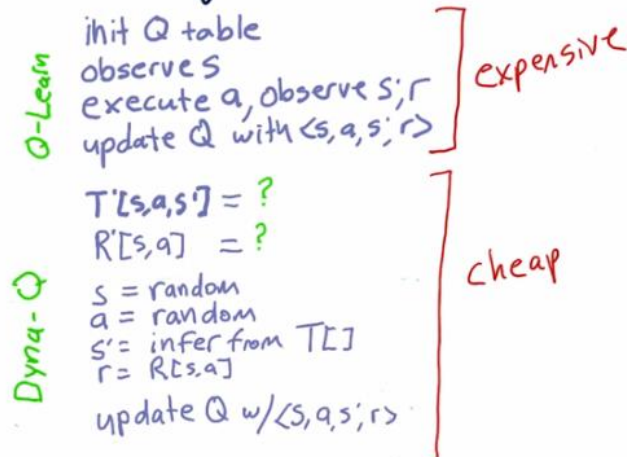 Q-Learn
init Q table
observe s
execute a, observe s', r
update Q with <s,a,s',r>
expensive
Dyna-Q
T'[s,a,s'] = ?
R'[s,a] = ?
s = random
a = random
s' = infer from T[]
r = R[s,a]
update Q w/<s,a,s',r>
cheap